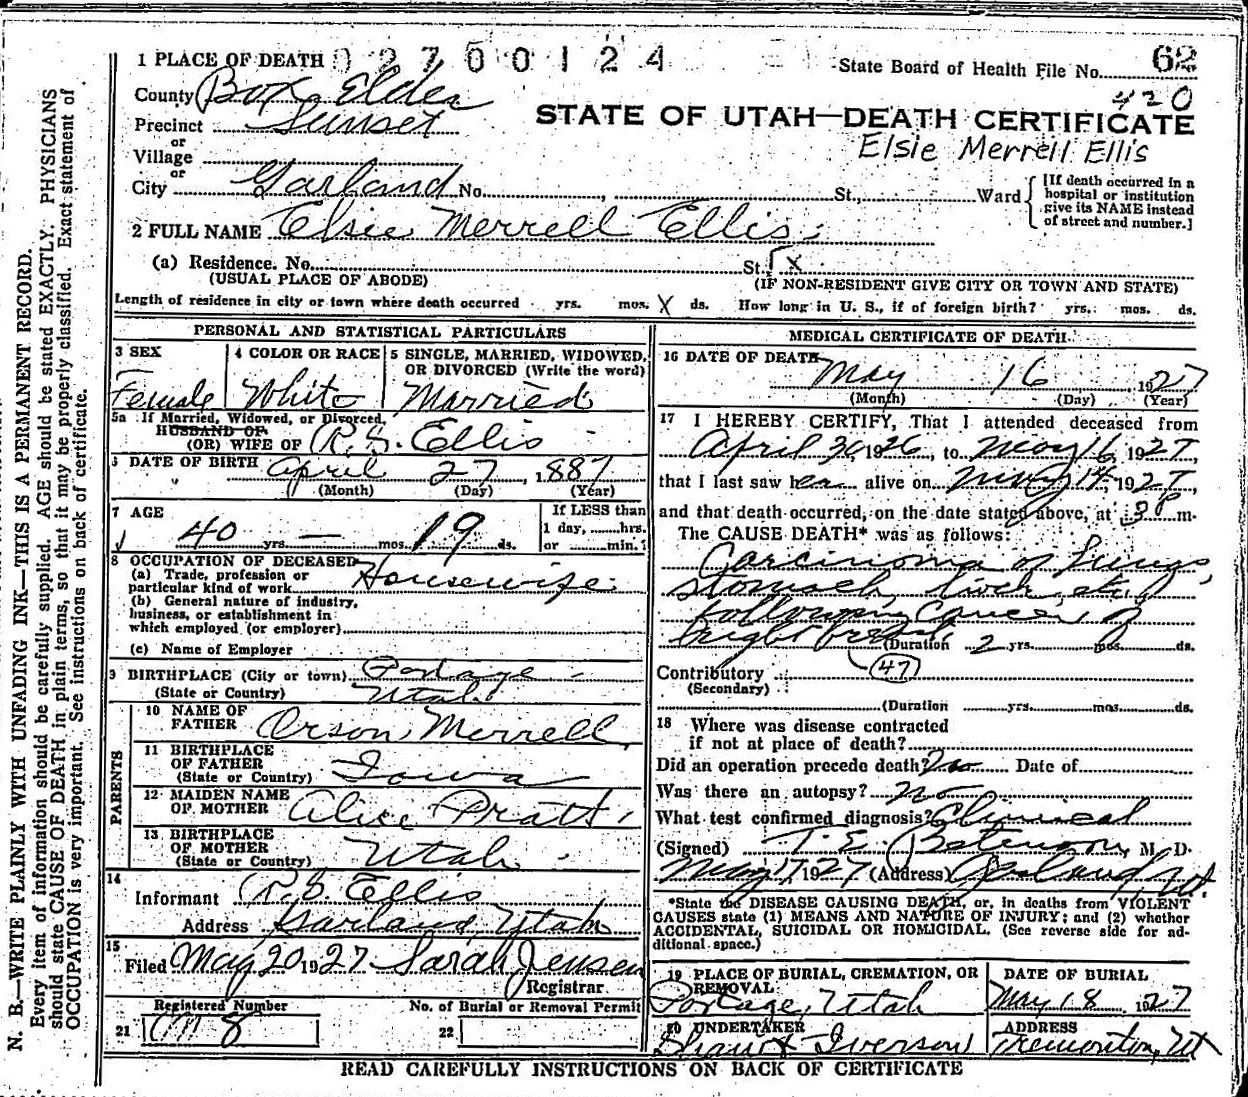 1 PLACE OF DEATH 02700124
State Board of Health File No. 62
420
County Box Elder
STATE OF UTAH—DEATH CERTIFICATE
Precinct Sunset
Elsie Merrell Ellis
or
Village
or
City Garland No. , St., Ward
[If death occurred in a
hospital or institution
give its NAME instead
of street and number.]
2 FULL NAME Elsie Merrell Ellis
(a) Residence. No. St. X
(USUAL PLACE OF ABODE) (IF NON-RESIDENT GIVE CITY OR TOWN AND STATE)
Length of residence in city or town where death occurred yrs. mos. X ds. How long in U. S., if of foreign birth? yrs. mos. ds.
PERSONAL AND STATISTICAL PARTICULARS
3 SEX
Female
4 COLOR OR RACE
White
5 SINGLE, MARRIED, WIDOWED,
OR DIVORCED (Write the word)
Married
5a If Married, Widowed, or Divorced,
HUSBAND OF
(OR) WIFE OF R. S. Ellis
6 DATE OF BIRTH April 27, 1887
(Month) (Day) (Year)
7 AGE
40 yrs. — mos. 19 ds.
If LESS than
1 day, hrs.
or min.?
8 OCCUPATION OF DECEASED
(a) Trade, profession or
particular kind of work Housewife
(b) General nature of industry,
business, or establishment in
which employed (or employer)
(c) Name of Employer
9 BIRTHPLACE (City or town) Portage
(State or Country) Utah
PARENTS
10 NAME OF
FATHER Orson Merrell
11 BIRTHPLACE
OF FATHER
(State or Country) Iowa
12 MAIDEN NAME
OF MOTHER Alice Pratt
13 BIRTHPLACE
OF MOTHER
(State or Country) Utah
14
Informant R. S. Ellis
Address Garland, Utah
15
Filed May 20 1927 Sarah Jensen
Registrar.
Registered Number No. of Burial or Removal Permit
21 8 22
MEDICAL CERTIFICATE OF DEATH
16 DATE OF DEATH
May 16 1927
(Month) (Day) (Year)
17 I HEREBY CERTIFY, That I attended deceased from
April 30 1926, to May 16, 1927,
that I last saw her alive on May 14, 1927,
and that death occurred, on the date stated above, at 3 P m.
The CAUSE DEATH* was as follows:
Carcinoma of lungs,
stomach, liver, etc
following Cancer of
right breast (Duration 2 yrs. mos. ds.
47
Contributory
(Secondary)
(Duration yrs. mos. ds.
18 Where was disease contracted
if not at place of death?
Did an operation precede death? No Date of
Was there an autopsy? no
What test confirmed diagnosis? Clinical
(Signed) T. E. Betenson, M. D.
May 17 1927 (Address) Garland, Ut.
*State the DISEASE CAUSING DEATH, or, in deaths from VIOLENT
CAUSES state (1) MEANS AND NATURE OF INJURY; and (2) whether
ACCIDENTAL, SUICIDAL OR HOMICIDAL. (See reverse side for ad-
ditional space.)
19 PLACE OF BURIAL, CREMATION, OR
REMOVAL
Portage, Utah
DATE OF BURIAL
May 18 1927
20 UNDERTAKER
Shaw & Iverson
ADDRESS
Tremonton, Ut
READ CAREFULLY INSTRUCTIONS ON BACK OF CERTIFICATE
N. B.—WRITE PLAINLY WITH UNFADING INK—THIS IS A PERMANENT RECORD.
Every item of information should be carefully supplied. AGE should be stated EXACTLY. PHYSICIANS
should state CAUSE OF DEATH in plain terms, so that it may be properly classified. Exact statement of
OCCUPATION is very important. See instructions on back of certificate.